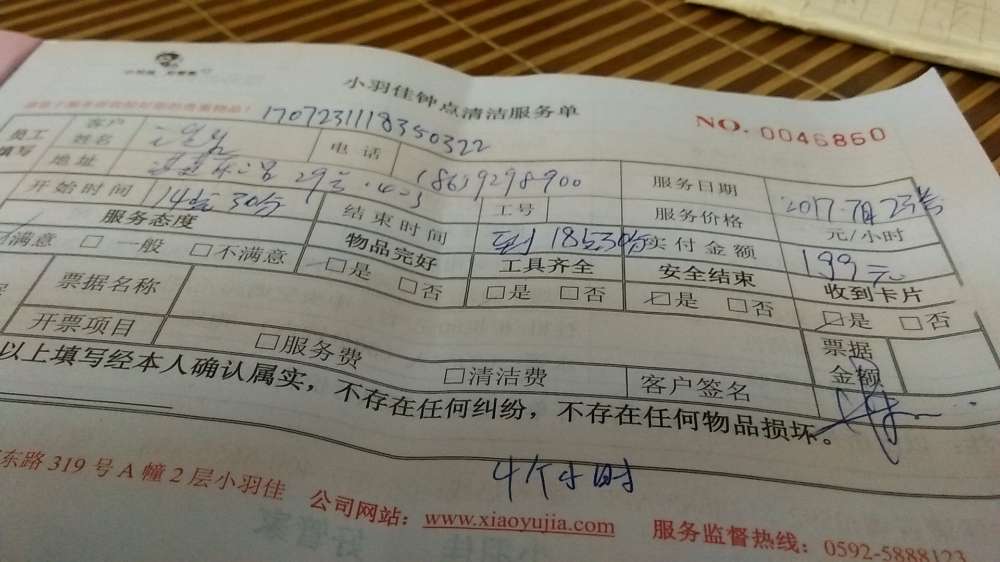 小羽佳钟点清洁服务单
NO. 0046860
1707231118350322
员工
填写
客户
姓名
电话
服务日期
2017.7月23号
地址
29号
工号
服务价格
元/小时
开始时间
14点30分
结束时间
18点30分
实付金额
199元
服务态度
物品完好
工具齐全
安全结束
收到卡片
满意 □ 一般 □不满意
□是 □否
□是 □否
□是 □否
□是 □否
票据名称
票据
金额
开票项目
□服务费
□清洁费
客户签名
以上填写经本人确认属实，不存在任何纠纷，不存在任何物品损坏。
4个小时
东路319号A幢2层小羽佳 公司网站：www.xiaoyujia.com 服务监督热线：0592-5888123